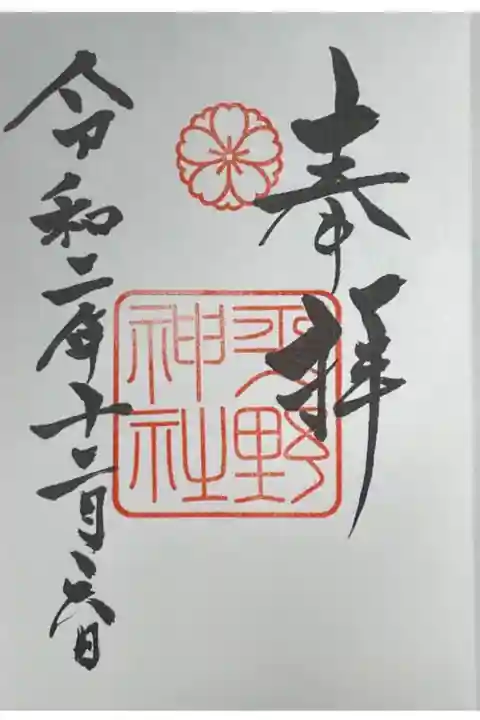 奉拝
平野神社
令和二年十二月六日